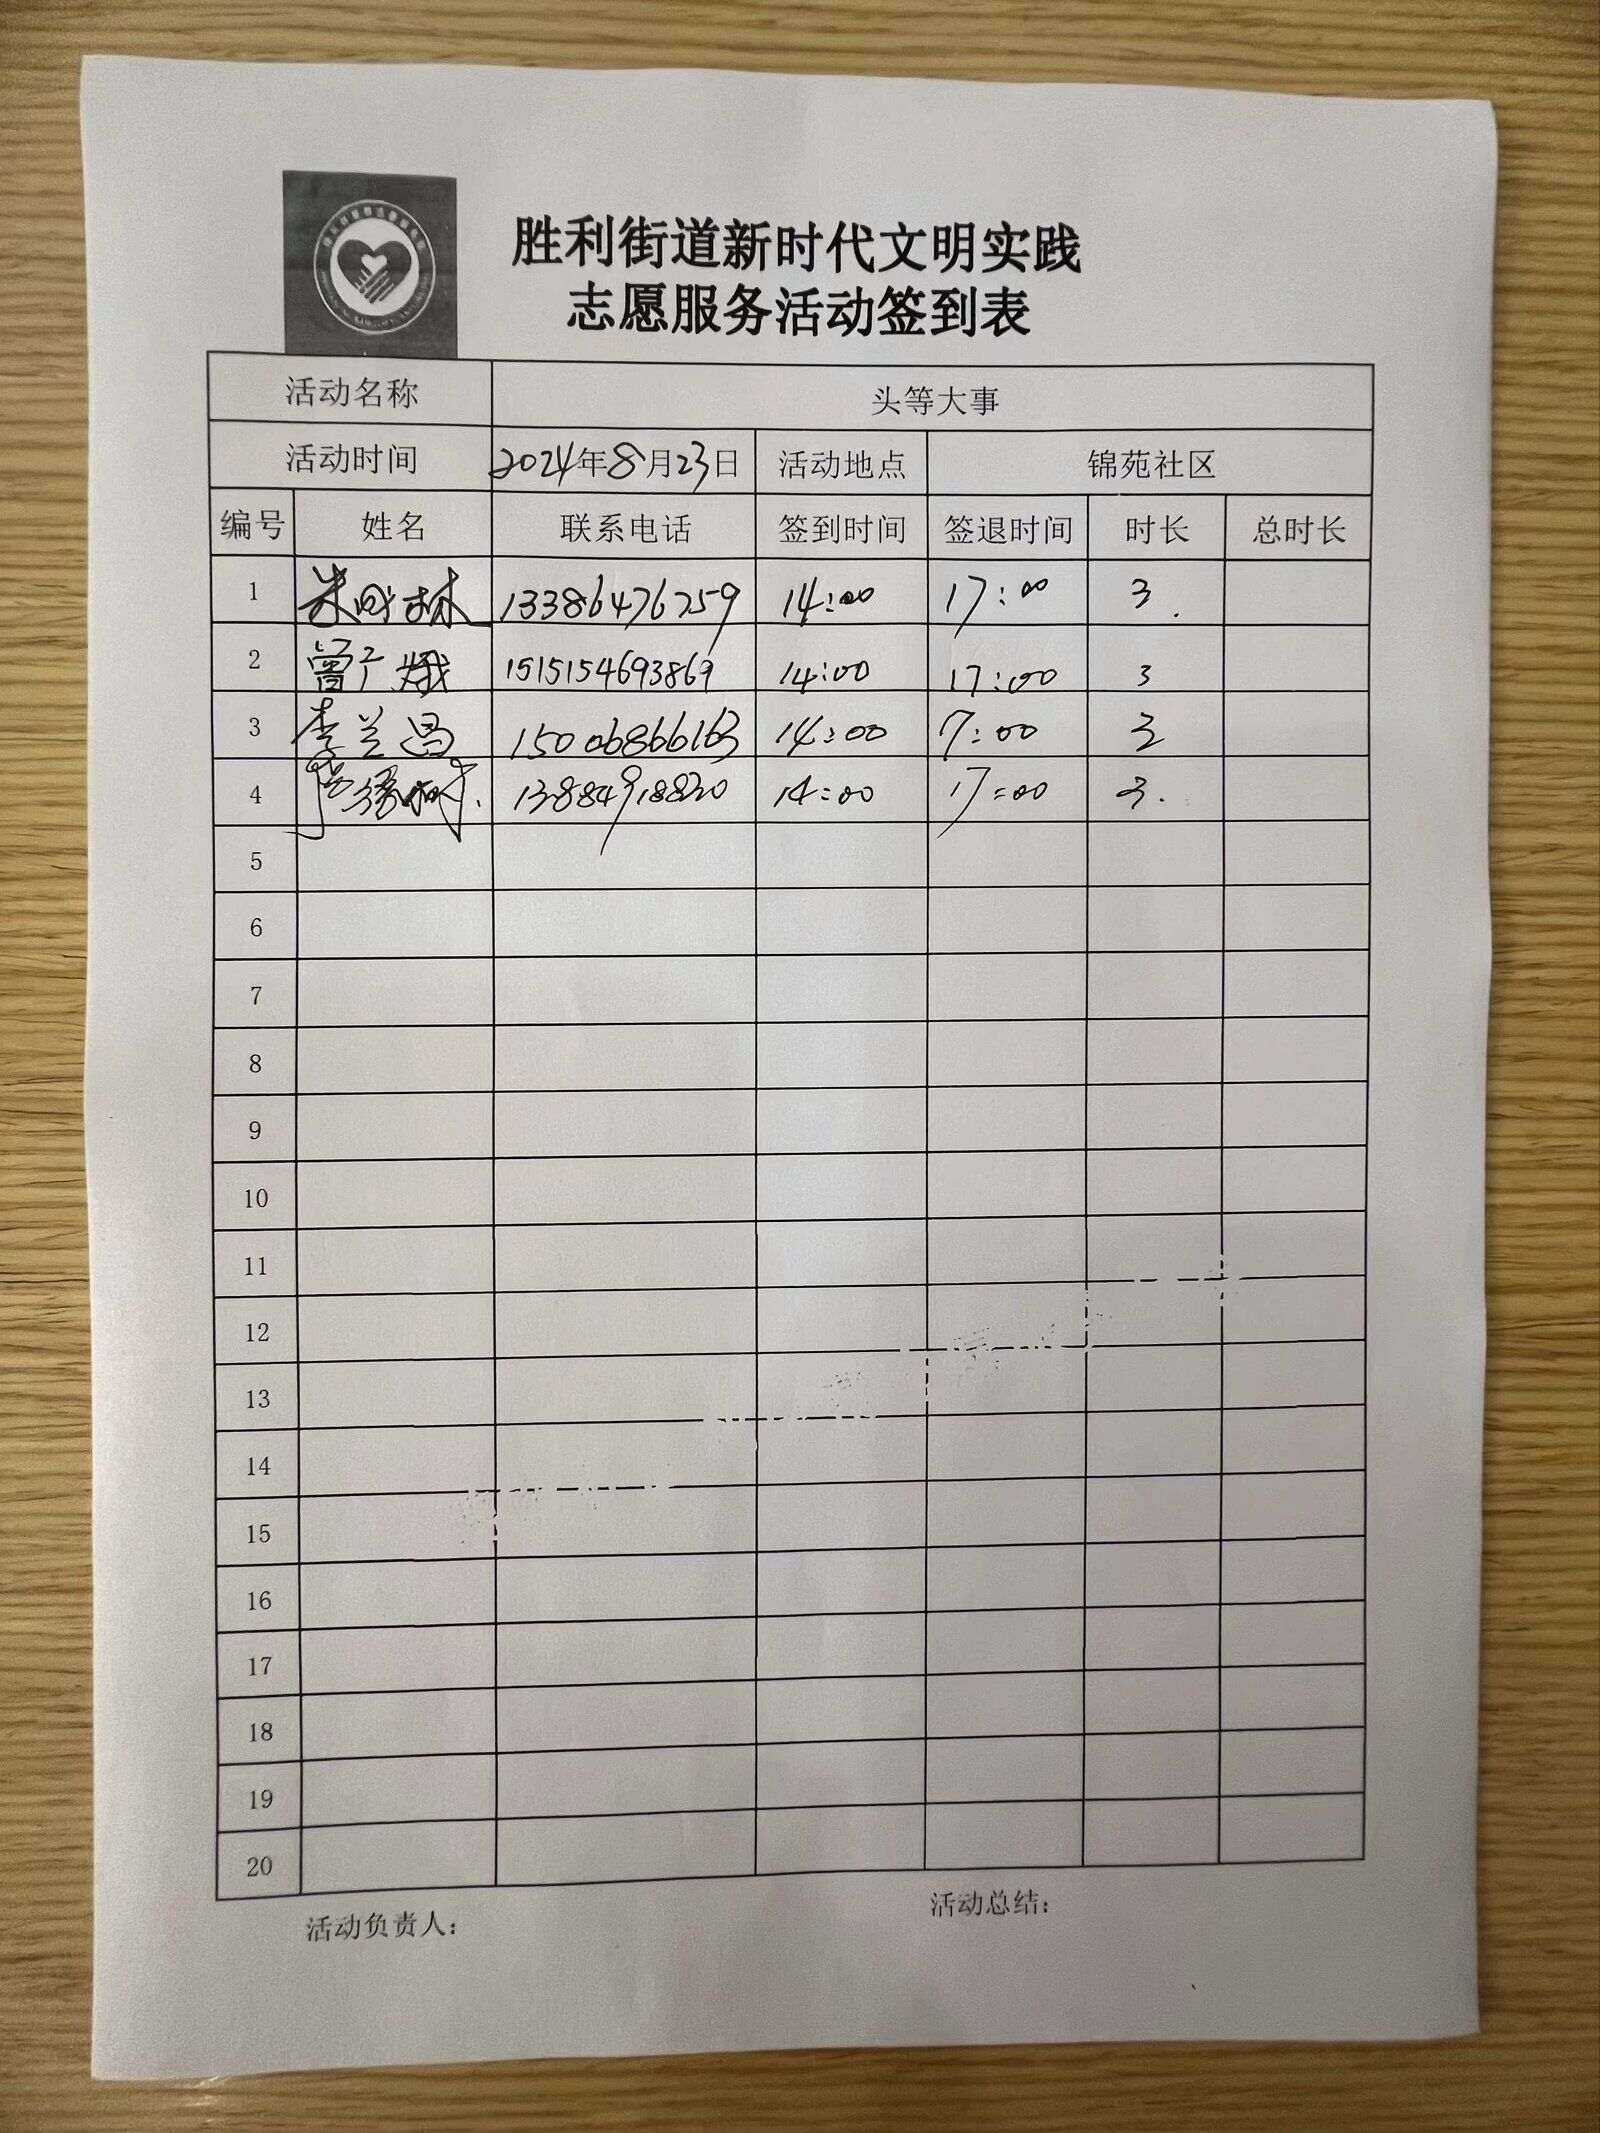 胜利街道新时代文明实践
志愿服务活动签到表
活动名称 头等大事
活动时间 2024年8月23日 活动地点 锦苑社区
编号 姓名 联系电话 签到时间 签退时间 时长 总时长
1 13386476759 14:00 17:00 3
2 曾广娥 1515154693869 14:00 17:00 3
3 李兰昌 15006866163 14:00 17:00 3
4 13884918820 14:00 17:00 3
5
6
7
8
9
10
11
12
13
14
15
16
17
18
19
20
活动负责人： 活动总结：